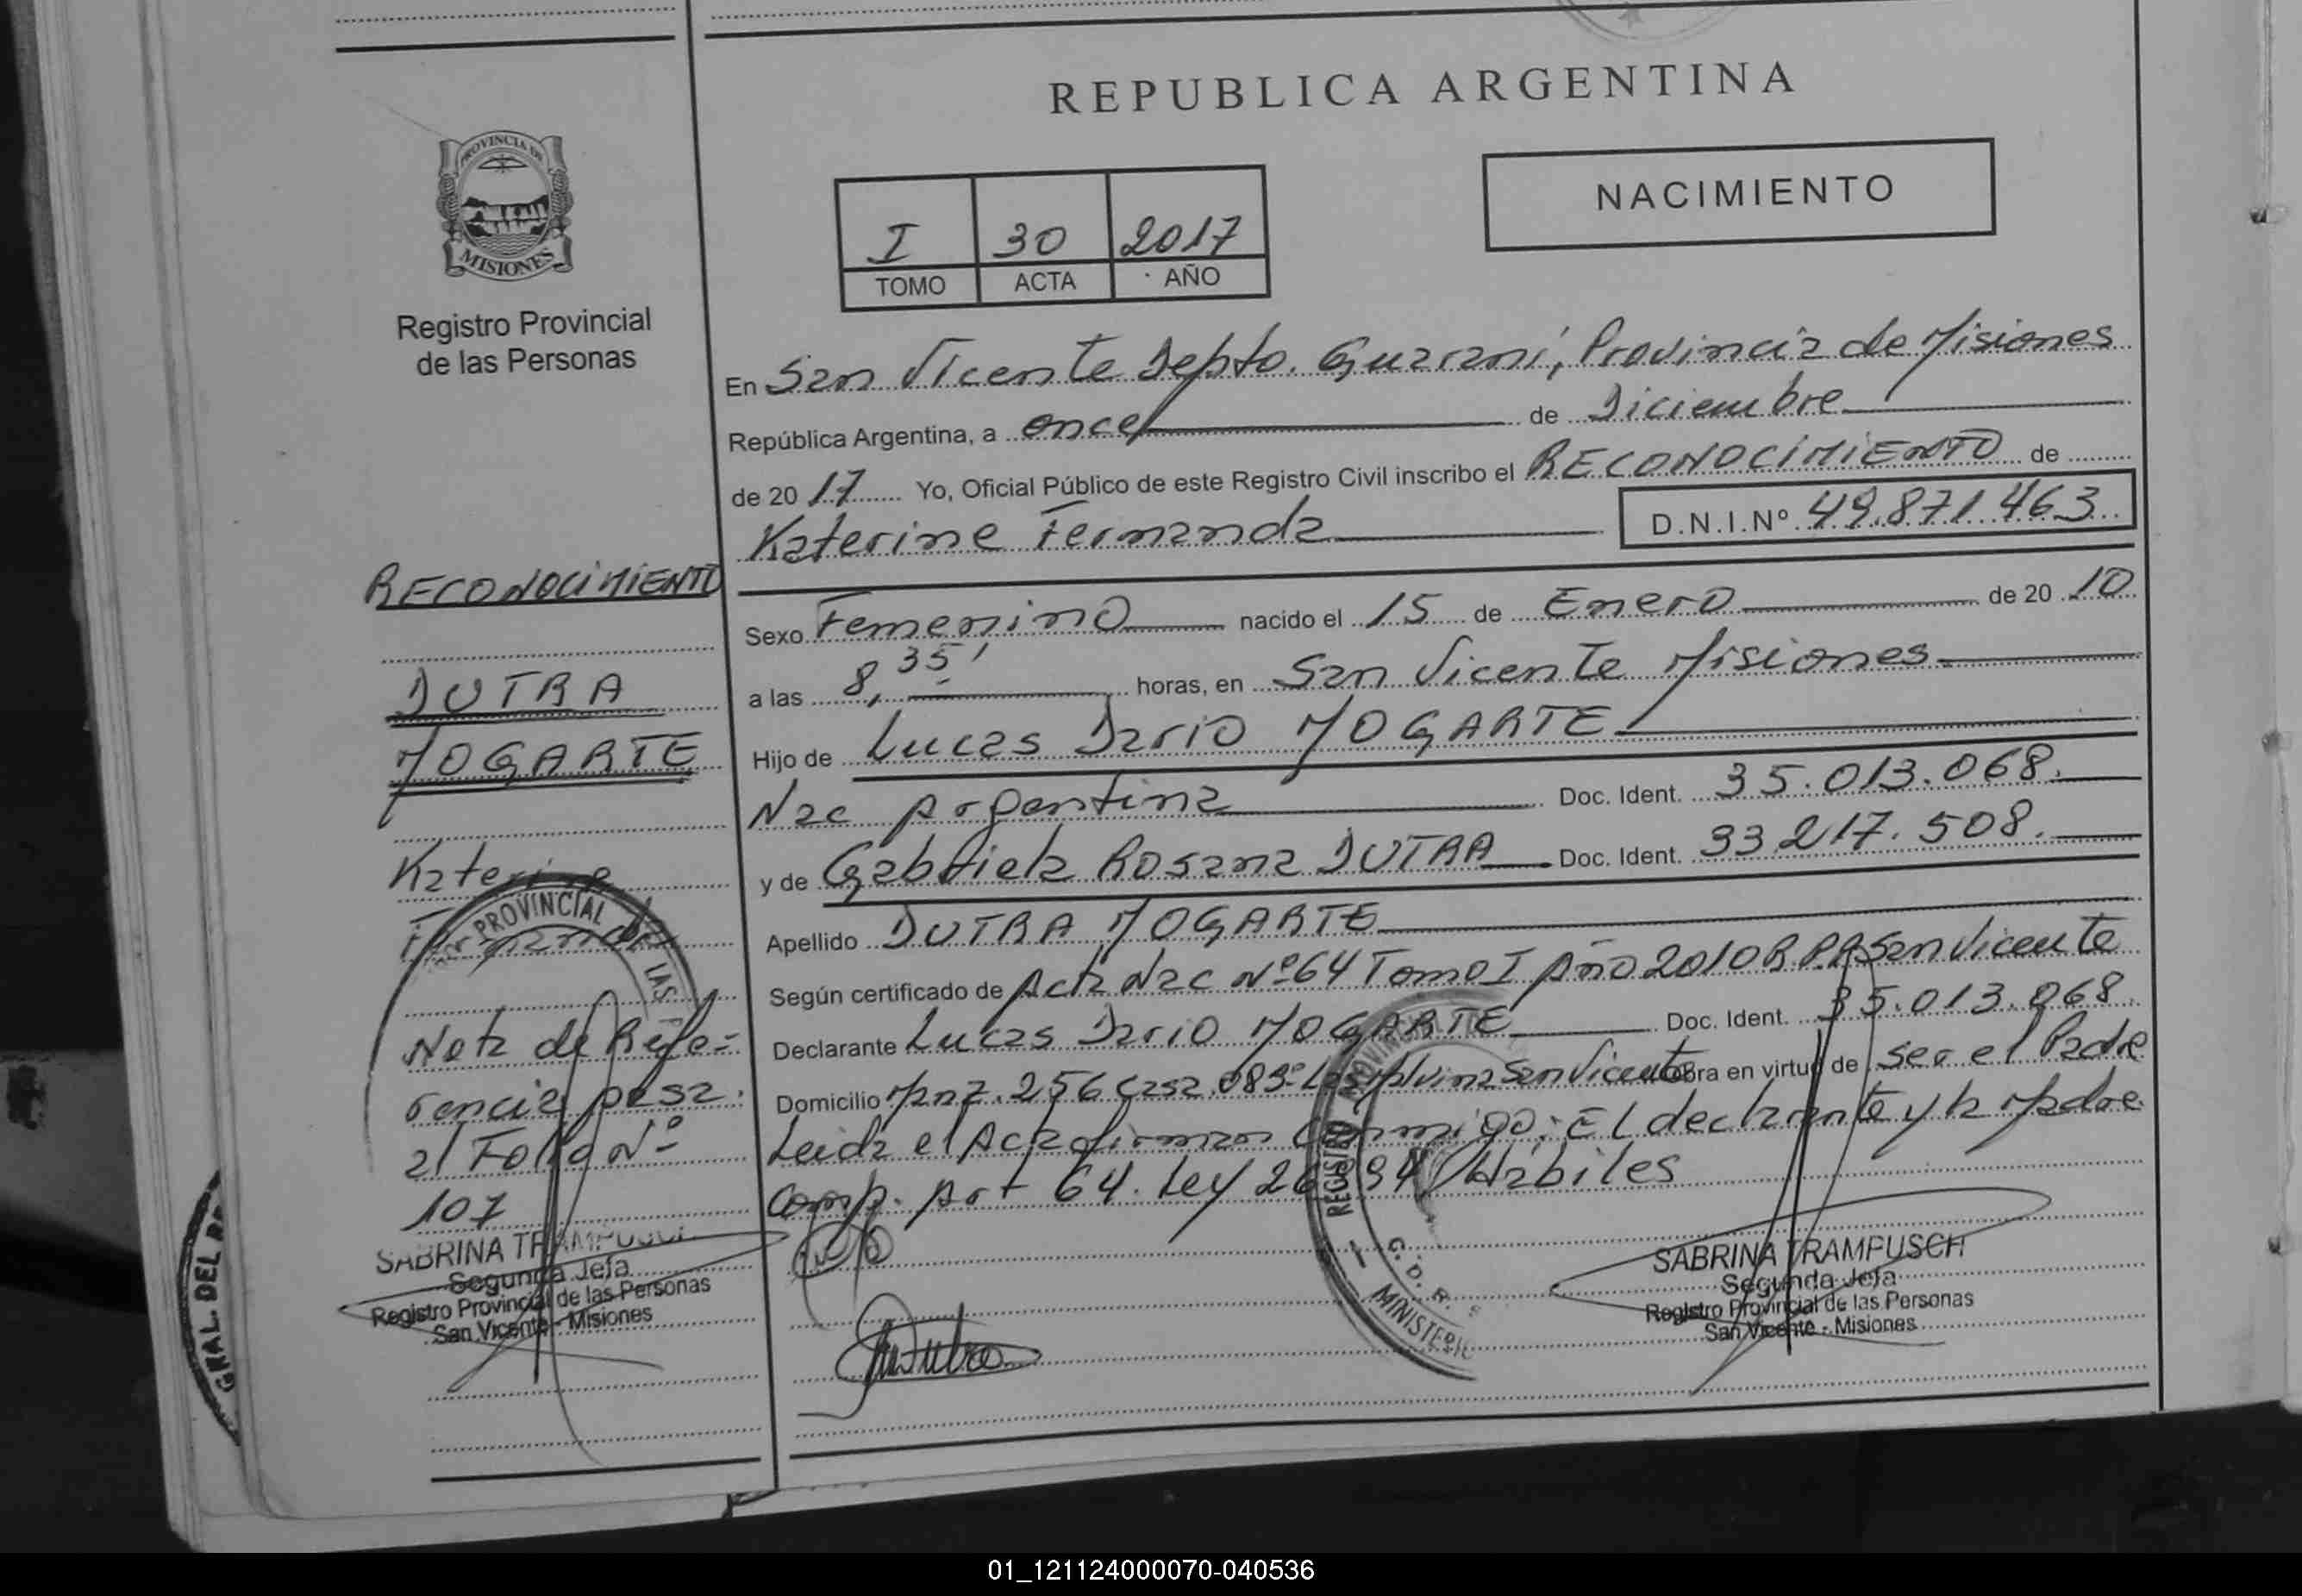 REPUBLICA ARGENTINA
PROVINCIA DE
MISIONES
Registro Provincial
de las Personas
NACIMIENTO
I 30 2017
TOMO ACTA AÑO
En San Vicente Depto. Guaraní, Provincia de Misiones
República Argentina, a once de Diciembre
de 20 17 Yo, Oficial Público de este Registro Civil inscribo el RECONOCIMIENTO de
Katerine Fernanda D.N.I.Nº 49.871.463
Sexo Femenino nacido el 15 de Enero de 20 10
a las 8,35' horas, en San Vicente Misiones
Hijo de Lucas Dario MOGARTE
Nac Argentina Doc. Ident. 35.013.068.
y de Gabriela Rosana DUTRA Doc. Ident. 33217.508.
Apellido DUTRA MOGARTE
Según certificado de Acta Nac Nº64 Tomo I Año 2010 R.P.P. San Vicente
Declarante Lucas Dario MOGARTE Doc. Ident. 35.013.068.
Domicilio Mnz. 256 Casa 083 San Vicente Obra en virtud de ser el Padre
Leida el Acta firman conmigo: El declarante y la Madre
Comp. Art 64. Ley 26994/Hábiles
RECONOCIMIENTO
DUTRA
MOGARTE
Katerine
Fernanda
Nota de Refe=
rencia pasa
al Folio Nº
107
SABRINA TRAMPUSCH
Segunda Jefa
Registro Provincial de las Personas
San Vicente - Misiones
SABRINA TRAMPUSCH
Segunda Jefa
Registro Provincial de las Personas
San Vicente - Misiones
PROVINCIAL DE LAS
REGISTRO PROVINCIAL
MINISTERIO
GRAL. DEL
01_121124000070-040536